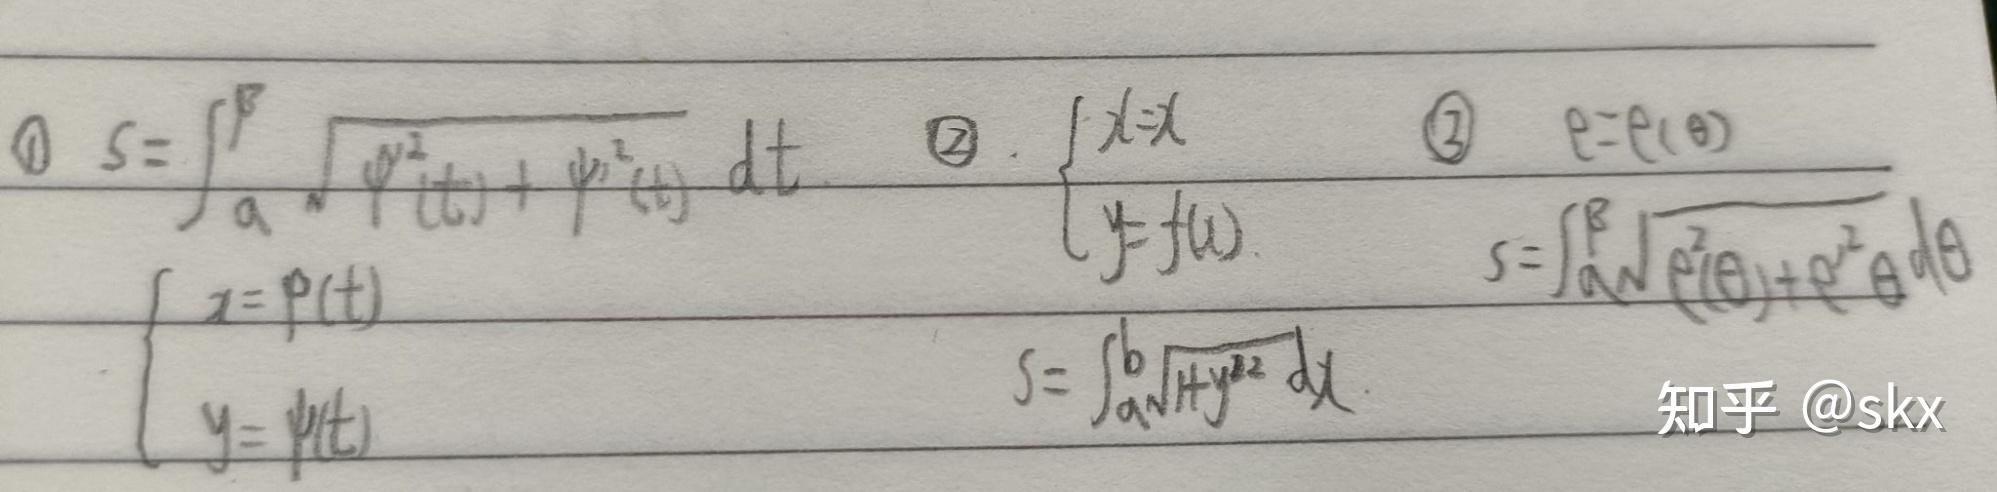 ① s = ∫_a^β √(φ'²(t) + ψ'²(t)) dt
{ x = φ(t)
y = ψ(t)
② . { x = x
y = f(x).
s = ∫_a^b √(1+y'²) dx.
③ ρ = ρ(θ)
s = ∫_a^β √(ρ²(θ) + ρ'²θ) dθ
知乎 @skx